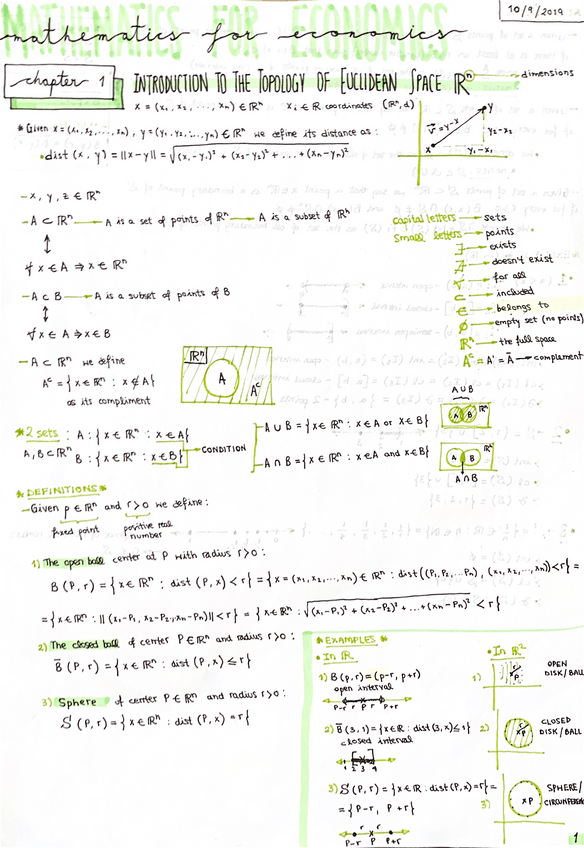 10/9/2019
MATHEMATICS FOR ECONOMICS
mathematics for economics
chapter 1
INTRODUCTION TO THE TOPOLOGY OF EUCLIDEAN SPACE ℝⁿ → dimensions
x = (x₁, x₂, ..., xₙ) ∈ ℝⁿ xᵢ ∈ ℝ coordinates (ℝⁿ, d)
* Given x = (x₁, x₂, ..., xₙ), y = (y₁, y₂, ..., yₙ) ∈ ℝⁿ we define its distance as:
• dist (x, y) = ||x-y|| = √(x₁-y₁)² + (x₂-y₂)² + ... + (xₙ-yₙ)²
y
v⃗ = y-x
y₂-x₂
x
y₁-x₁
- x, y, z ∈ ℝⁿ
- A ⊂ ℝⁿ → A is a set of points of ℝⁿ → A is a subset of ℝⁿ
↕
∀ x ∈ A ⇒ x ∈ ℝⁿ
- A ⊂ B → A is a subset of points of B
↕
∀ x ∈ A ⇒ x ∈ B
capital letters → sets
small letters → points
∃ → exists
∄ → doesn't exist
∀ → for all
⊂ → included
∈ → belongs to
∅ → empty set (no points)
ℝⁿ → the full space
Aᶜ = A' = Ā → complement
- A ⊂ ℝⁿ we define
Aᶜ = {x ∈ ℝⁿ : x ∉ A}
as its compliment
ℝⁿ
A
Aᶜ
* 2 sets : A : {x ∈ ℝⁿ : x ∈ A}
A, B ⊂ ℝⁿ B : {x ∈ ℝⁿ : x ∈ B}
→ CONDITION
A ∪ B = {x ∈ ℝⁿ : x ∈ A or x ∈ B}
A ∩ B = {x ∈ ℝⁿ : x ∈ A and x ∈ B}
A ∪ B
A B ℝⁿ
A B ℝ²
A ∩ B
* DEFINITIONS *
- Given p ∈ ℝⁿ and r > 0 we define:
fixed point
positive real
number
1) The open ball center at P with radius r > 0 :
B (P, r) = {x ∈ ℝⁿ : dist (P, x) < r} = {x = (x₁, x₂, ..., xₙ) ∈ ℝⁿ : dist((P₁, P₂, ... Pₙ), (x₁, x₂, ..., xₙ)) < r} =
= {x ∈ ℝⁿ : || (x₁-P₁, x₂-P₂, ..., xₙ-Pₙ)|| < r} = {x ∈ ℝⁿ : √(x₁-P₁)² + (x₂-P₂)² + ... + (xₙ-Pₙ)² < r}
2) The closed ball of center P ∈ ℝⁿ and radius r > 0 :
B̄ (P, r) = {x ∈ ℝⁿ : dist (P, x) ≤ r}
3) Sphere of center P ∈ ℝⁿ and radius r > 0 :
S (P, r) = {x ∈ ℝⁿ : dist (P, x) = r}
* EXAMPLES *
• In ℝ
1) B (P, r) = (p-r, p+r)
open interval
p-r r p r p+r
2) B̄ (3, 1) = {x ∈ ℝ : dist (3, x) ≤ 1}
closed interval
1 2 3 4
3) S (P, r) = {x ∈ ℝ : dist (P, x) = r} =
= {P-r, P+r}
r r
P-r P P+r
• In ℝ²
1)
r
P
OPEN
DISK/BALL
2)
r
P
CLOSED
DISK/BALL
3)
x P
SPHERE/
CIRCUNFERENCE
1